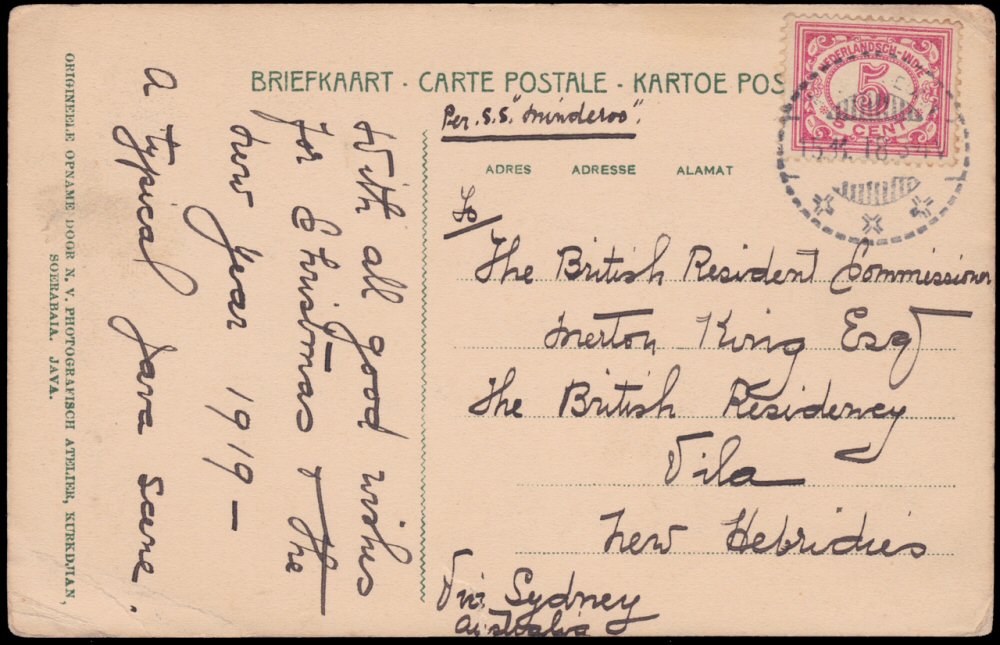 BRIEFKAART · CARTE POSTALE · KARTOE POS
Per. S.S. "Minderoo".
ADRES ADRESSE ALAMAT
NEDERLANDSCH-INDIË
5
5 CENT
15.11.18.
To/
The British Resident Commissioner
Merton King Esq
The British Residency
Vila
New Hebridies
Via Sydney
Australia
With all good wishes
for Christmas & the
New Year 1919 –
A typical Java Scene.
ORIGINEELE OPNAME DOOR N. V. PHOTOGRAFISCH ATELIER, KURKDJIAN,
SOERABAIA. JAVA.